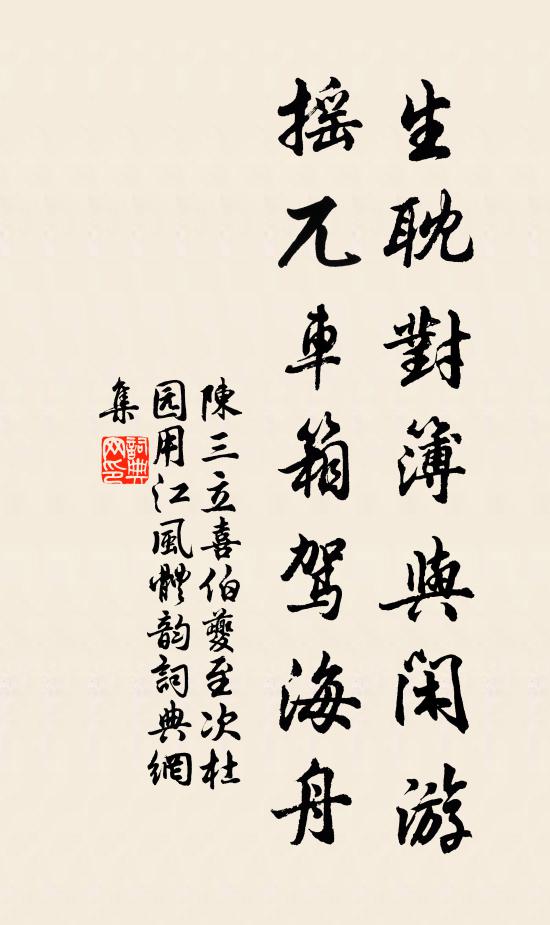 生耽對簿與閑游
摇兀車箱駕海舟
陳三立喜伯夔至次杜
园用江風體韵詞典網
集
詞典
网印